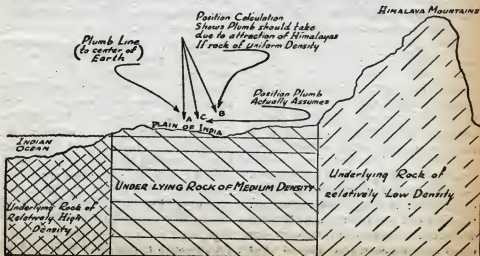 HIMALAYA MOUNTAINS
Position Calculation
Shows Plumb should take
due to attraction of Himalayas
If rock of uniform Density
Plumb Line
(to center of
Earth)
A
C
B
Position Plumb
Actually Assumes
PLAIN OF INDIA
INDIAN
OCEAN
UNDER LYING ROCK OF MEDIUM DENSITY
Underlying Rock of
Relatively High
Density
Underlying Rock of
relatively Low Density